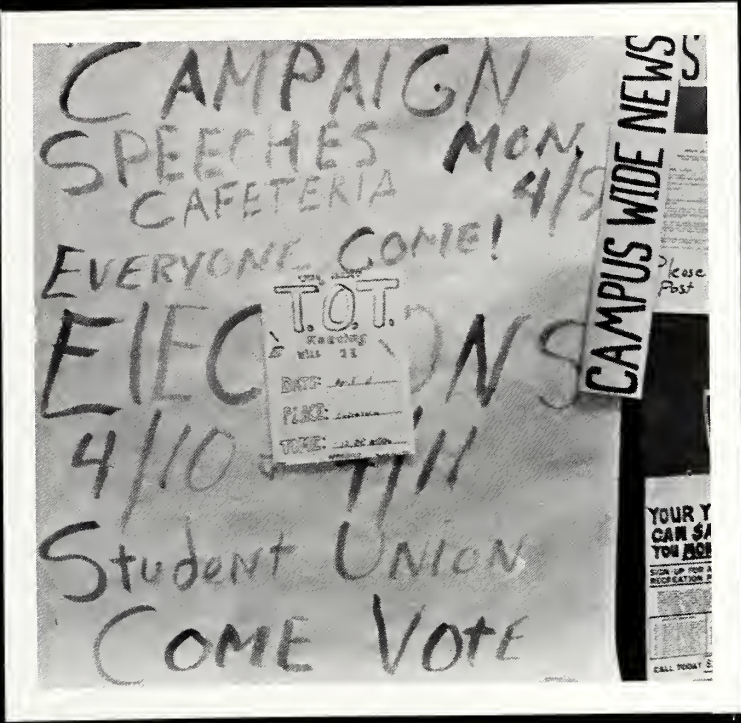 CAMPAIGN
SPEECHES MON.
CAFETERIA 4/9
EVERYONE COME!
ElEC ONS
4/10 4/11
Student UNION
COME VOtE
T.O.T.
Meeting
Will
DATE:
PLACE:
TIME:
CAMPUS WIDE NEWS
S
Please
Post
YOUR Y
CAN SA
YOU MON
SIGN UP FOR A
RECREATION P
CALL TODAY